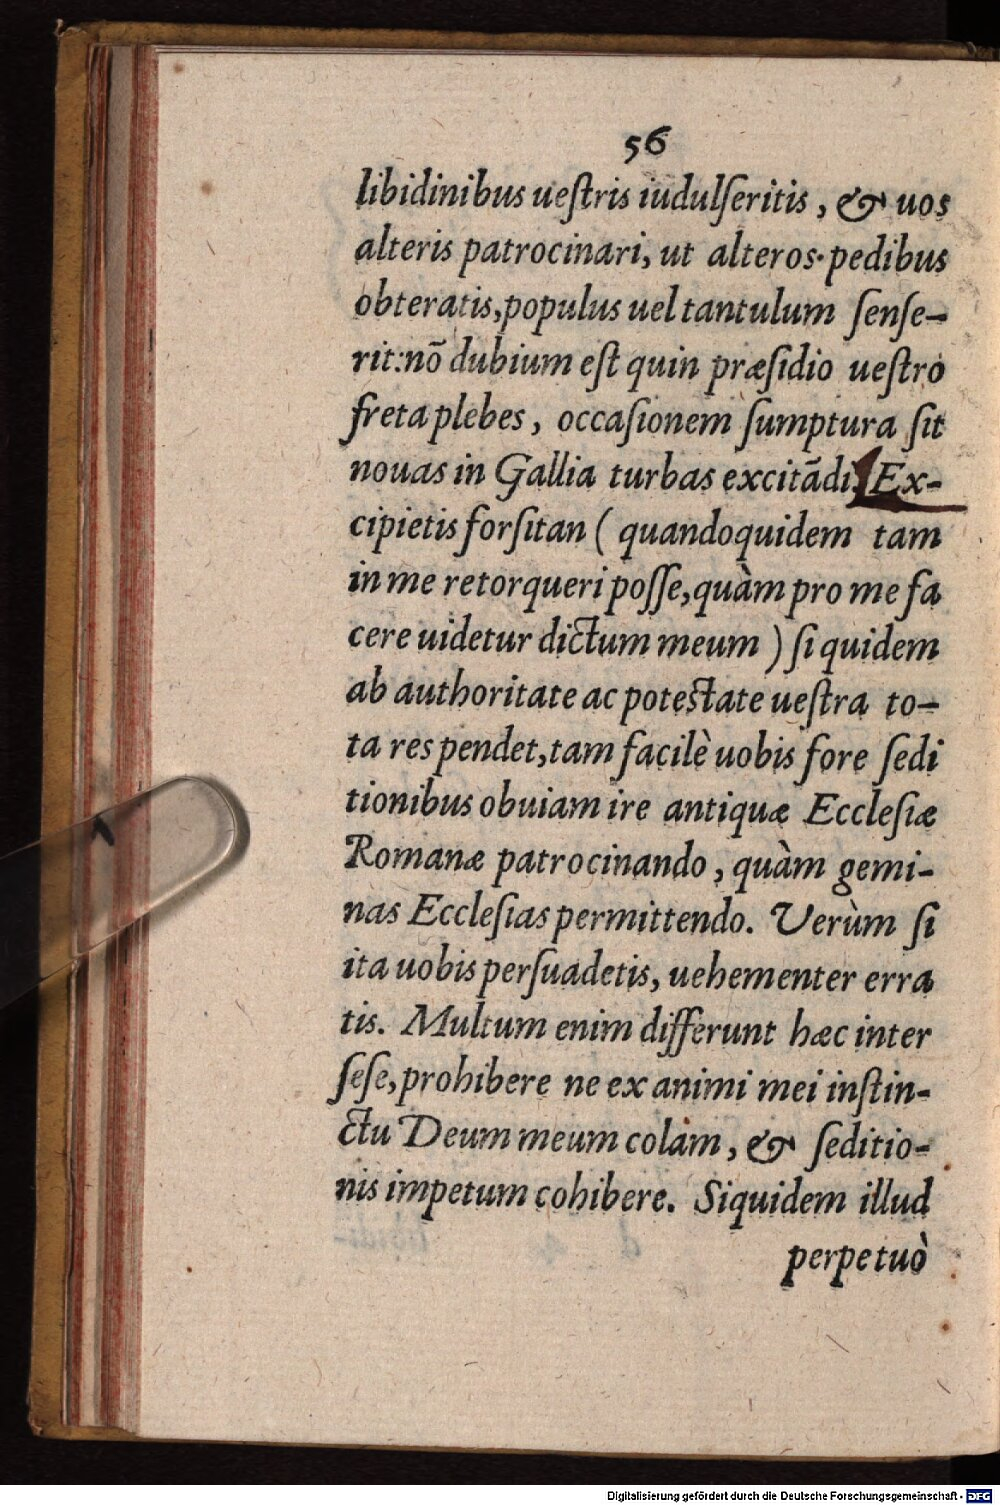 56
libidinibus ueſtris iudulſeritis, & uos
alteris patrocinari, ut alteros pedibus
obteratis, populus uel tantulum ſenſe-
rit: nō dubium eſt quin præſidio ueſtro
freta plebes, occaſionem ſumptura ſit
nouas in Gallia turbas excitādi. Ex-
cipietis forſitan ( quandoquidem tam
in me retorqueri poſſe, quàm pro me fa
cere uidetur dictum meum ) ſi quidem
ab authoritate ac poteſtate ueſtra to-
ta respendet, tam facilè uobis fore ſedi
tionibus obuiam ire antiquæ Eccleſiæ
Romanæ patrocinando, quàm gemi-
nas Eccleſias permittendo. Verùm ſi
ita uobis perſuadetis, uehementer erra
tis. Multum enim differunt hæc inter
ſeſe, prohibere ne ex animi mei inſtin-
ctu Deum meum colam, & ſeditio-
nis impetum cohibere. Siquidem illud
perpetuò
Digitalisierung gefördert durch die Deutsche Forschungsgemeinschaft - DFG